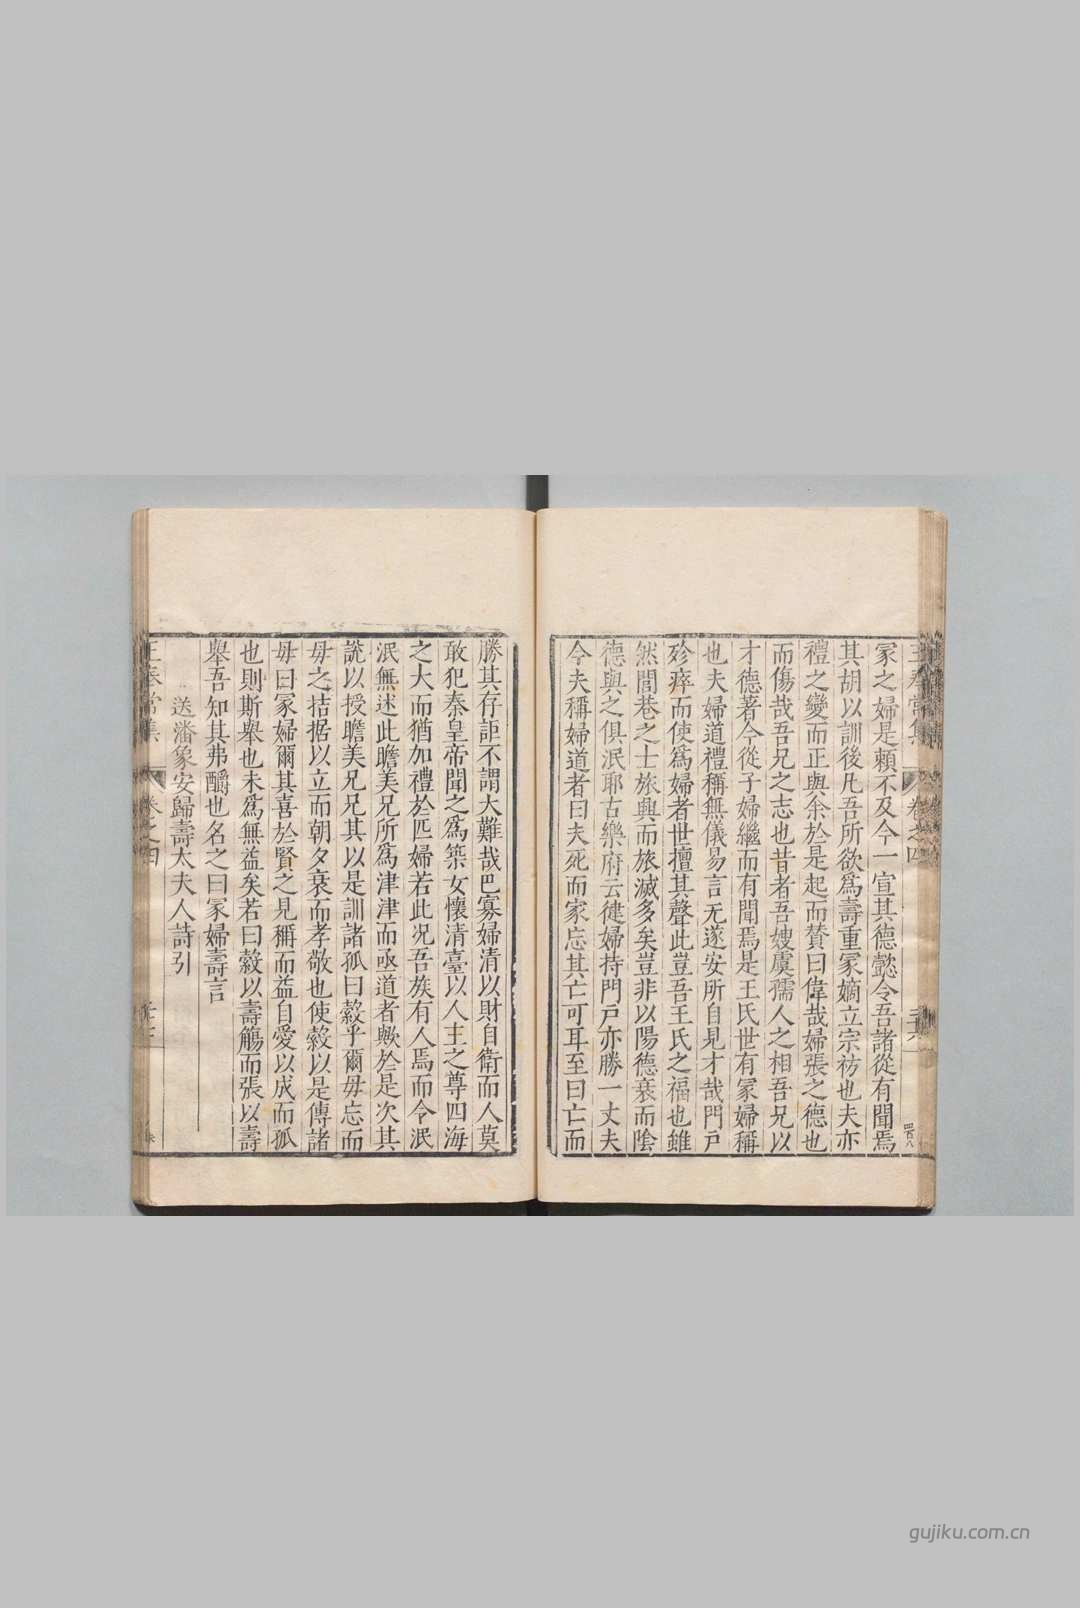 冡之婦是賴不及今一宣其德懿令吾諸從有聞焉
其胡以訓後凡吾所欲爲壽重冡嫡立宗祊也夫亦
禮之變而正與余於是起而贊曰偉哉婦張之德也
而傷哉吾兄之志也昔者吾嫂虞孺人之相吾兄以
才德著今從子婦繼而有聞焉是王氏世有冡婦稱
也夫婦道禮稱無儀易言无遂安所自見才哉門戸
殄瘁而使爲婦者世擅其聲此豈吾王氏之福也雖
然閭巷之士旅興而旅滅多矣豈非以陽德衰而陰
德與之俱泯耶古樂府云健婦持門戸亦勝一丈夫
今夫稱婦道者曰夫死而家忘其亡可耳至曰亡而
勝其存詎不謂大難哉巴寡婦清以財自衛而人莫
敢犯秦皇帝聞之爲築女懷清臺以人主之尊四海
之大而猶加禮於匹婦若此况吾族有人焉而令泯
泯無述此瞻美兄所爲津津而亟道者歟於是次其
說以授瞻美兄兄其以是訓諸孤曰穀乎爾毋忘而
母之拮据以立而朝夕衰而孝敬也使穀以是傳諸
母曰冡婦爾其喜於賢之見稱而益自愛以成而孤
也則斯舉也未爲無益矣若曰穀以壽觴而張以壽
舉吾知其弗釂也名之曰冡婦壽言
送潘象安歸壽太夫人詩引
王奉常集
卷之四
gujiku.com.cn